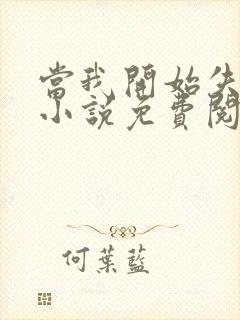 當我開始失
小說免費閱
何葉藍